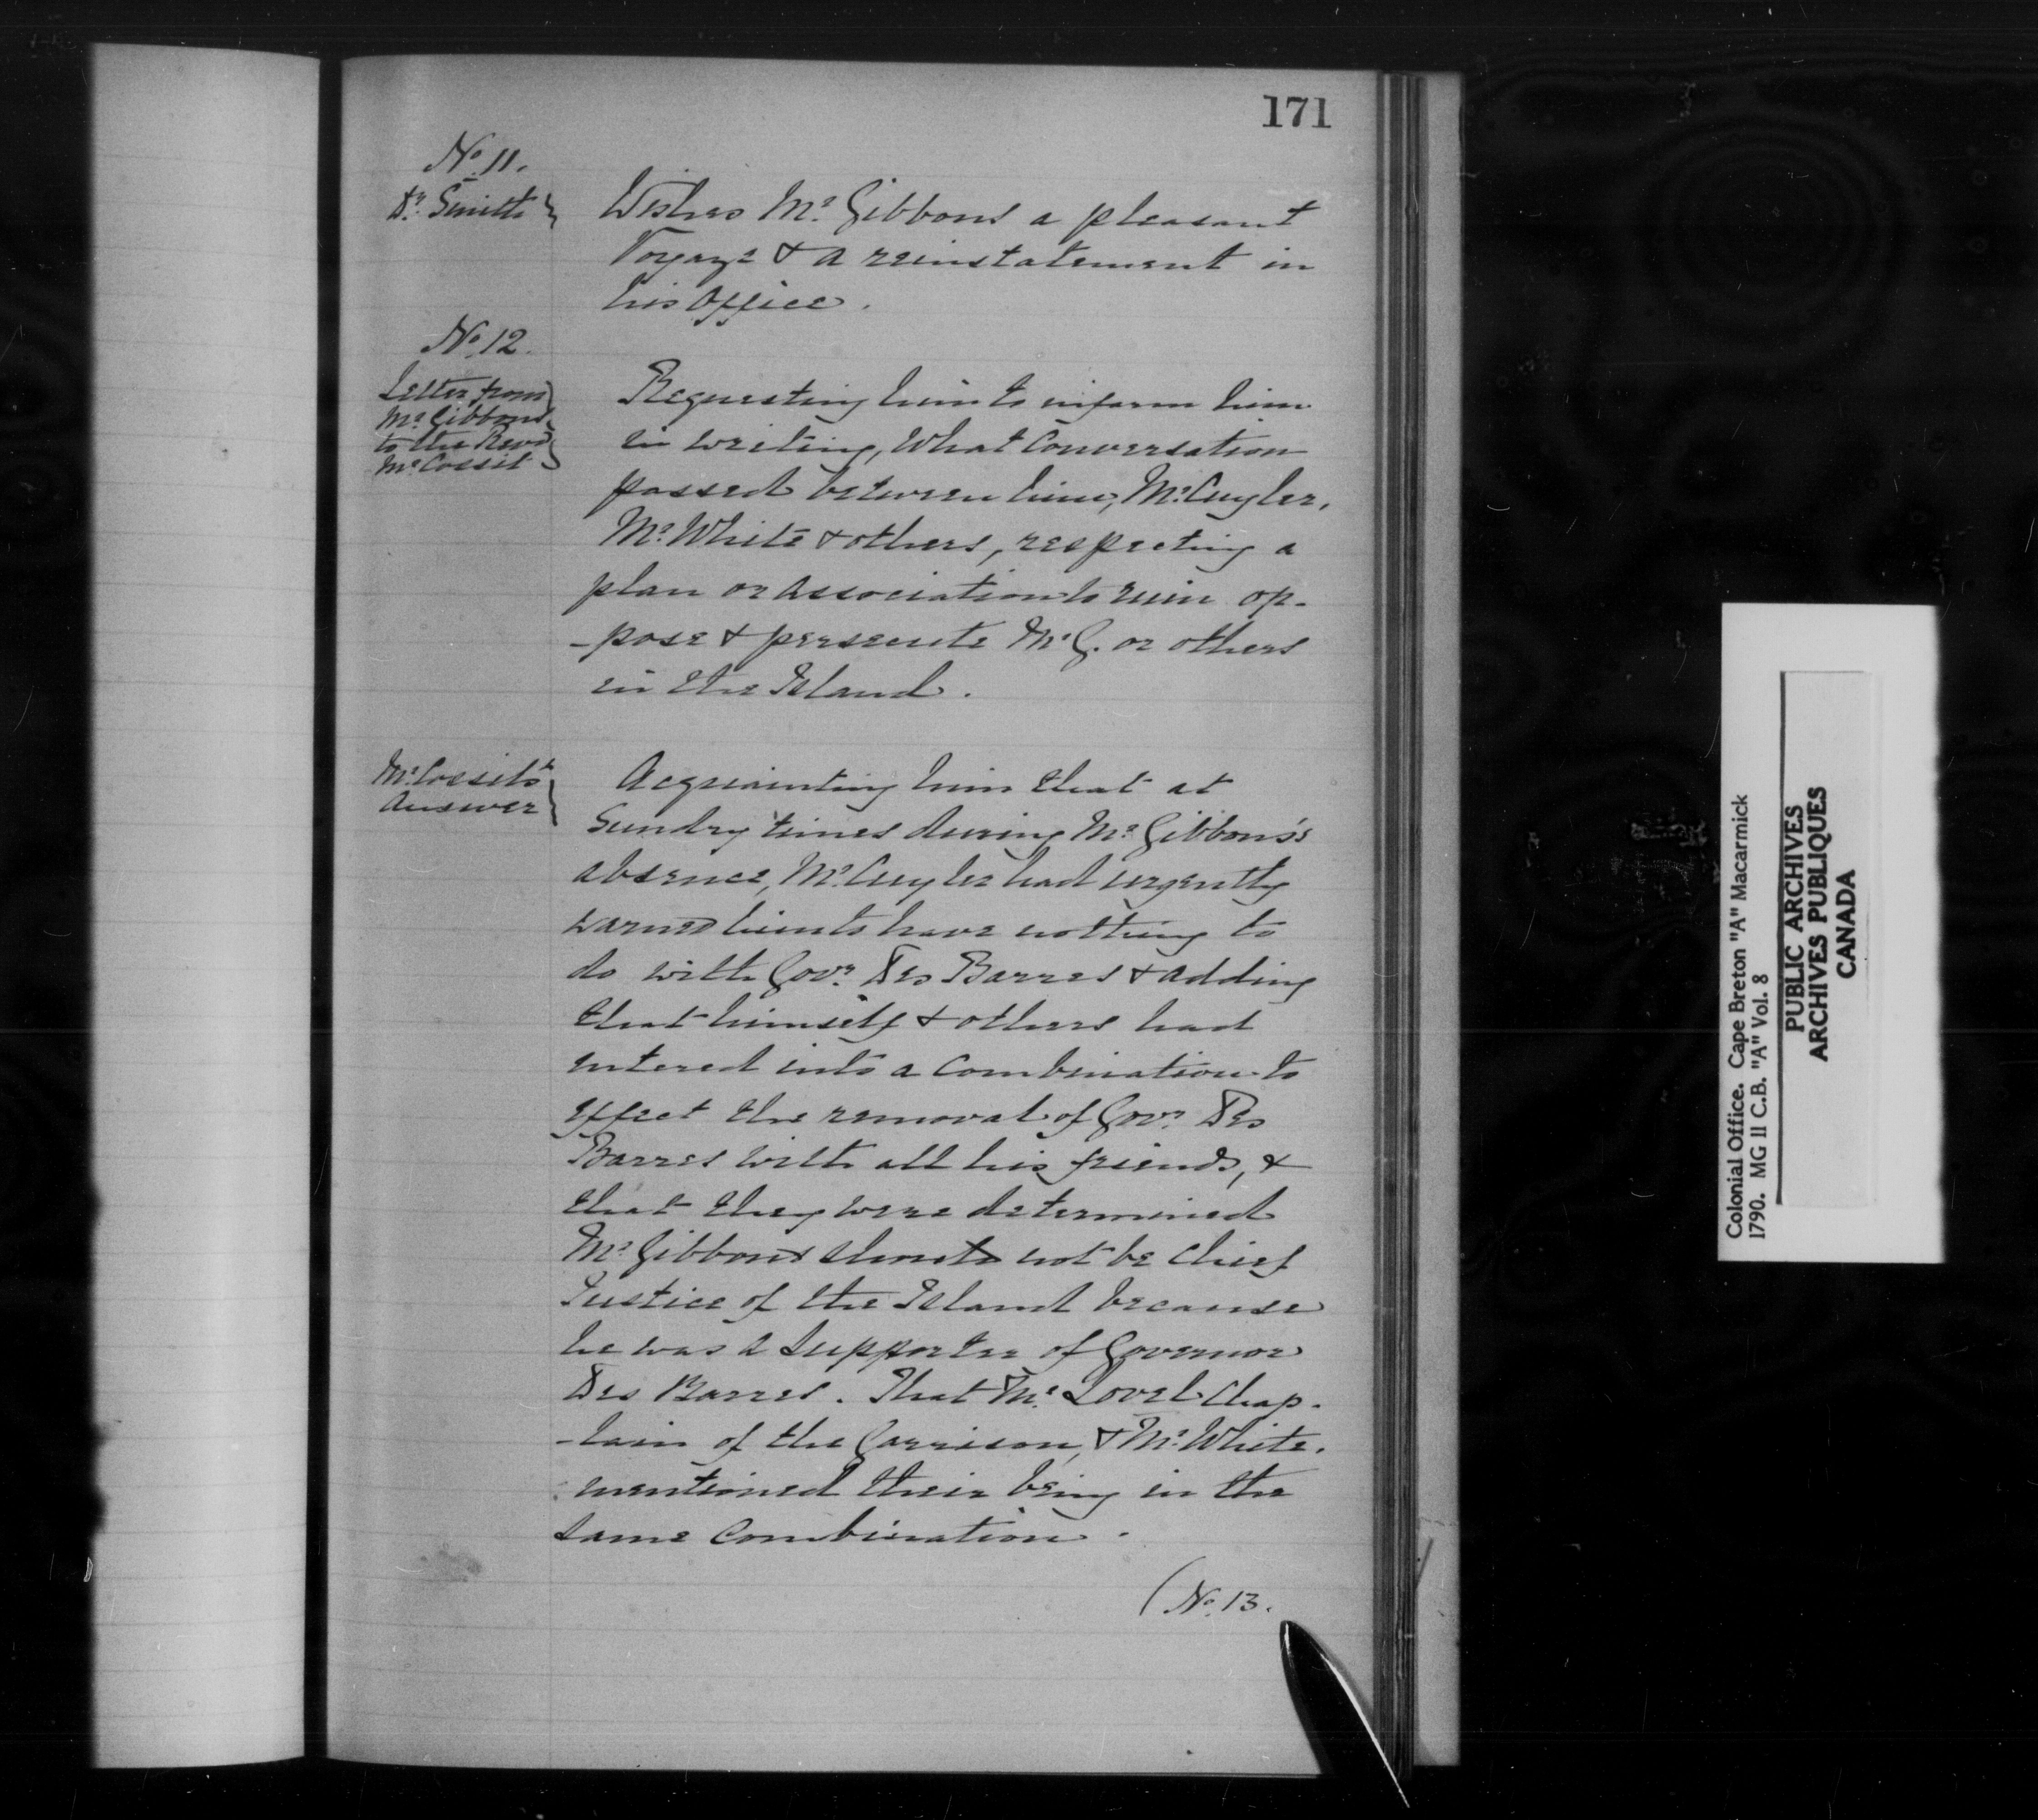 171
No. 11.
Dr. Smith
Wishes Mr. Gibbons a pleasant
Voyage & a reinstatement in
his Office.
No. 12.
Letter from
Mr. Gibbons
to the Revd
Mr. Cossit
Requesting him to inform him
in writing, What Conversation
passed between him, Mr. Cuyler,
Mr. White & others, respecting a
plan or Association to ruin op-
-pose & persecute Mr. G. or others
in the Island.
Mr. Cossit's
Answer
Acquainting him that at
Sundry times during Mr. Gibbons's
absence, Mr. Cuyler had urgently
warned him to have nothing to
do with Govr. Des Barres & adding
that himself & others had
entered into a Combination to
effect the removal of Govr. Des
Barres with all his friends, &
that they were determined
Mr. Gibbons should not be Chief
Justice of the Island because
he was a Supporter of Governor
Des Barres. That Mr. Lovel Chap-
-lain of the Garrison, & Mr. White.
mentioned their being in the
same Combination.
(No. 13.
Colonial Office. Cape Breton "A" Macarmick
1790. MG 11 C.B. "A" Vol. 8
PUBLIC ARCHIVES
ARCHIVES PUBLIQUES
CANADA